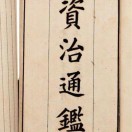 資治通鑑